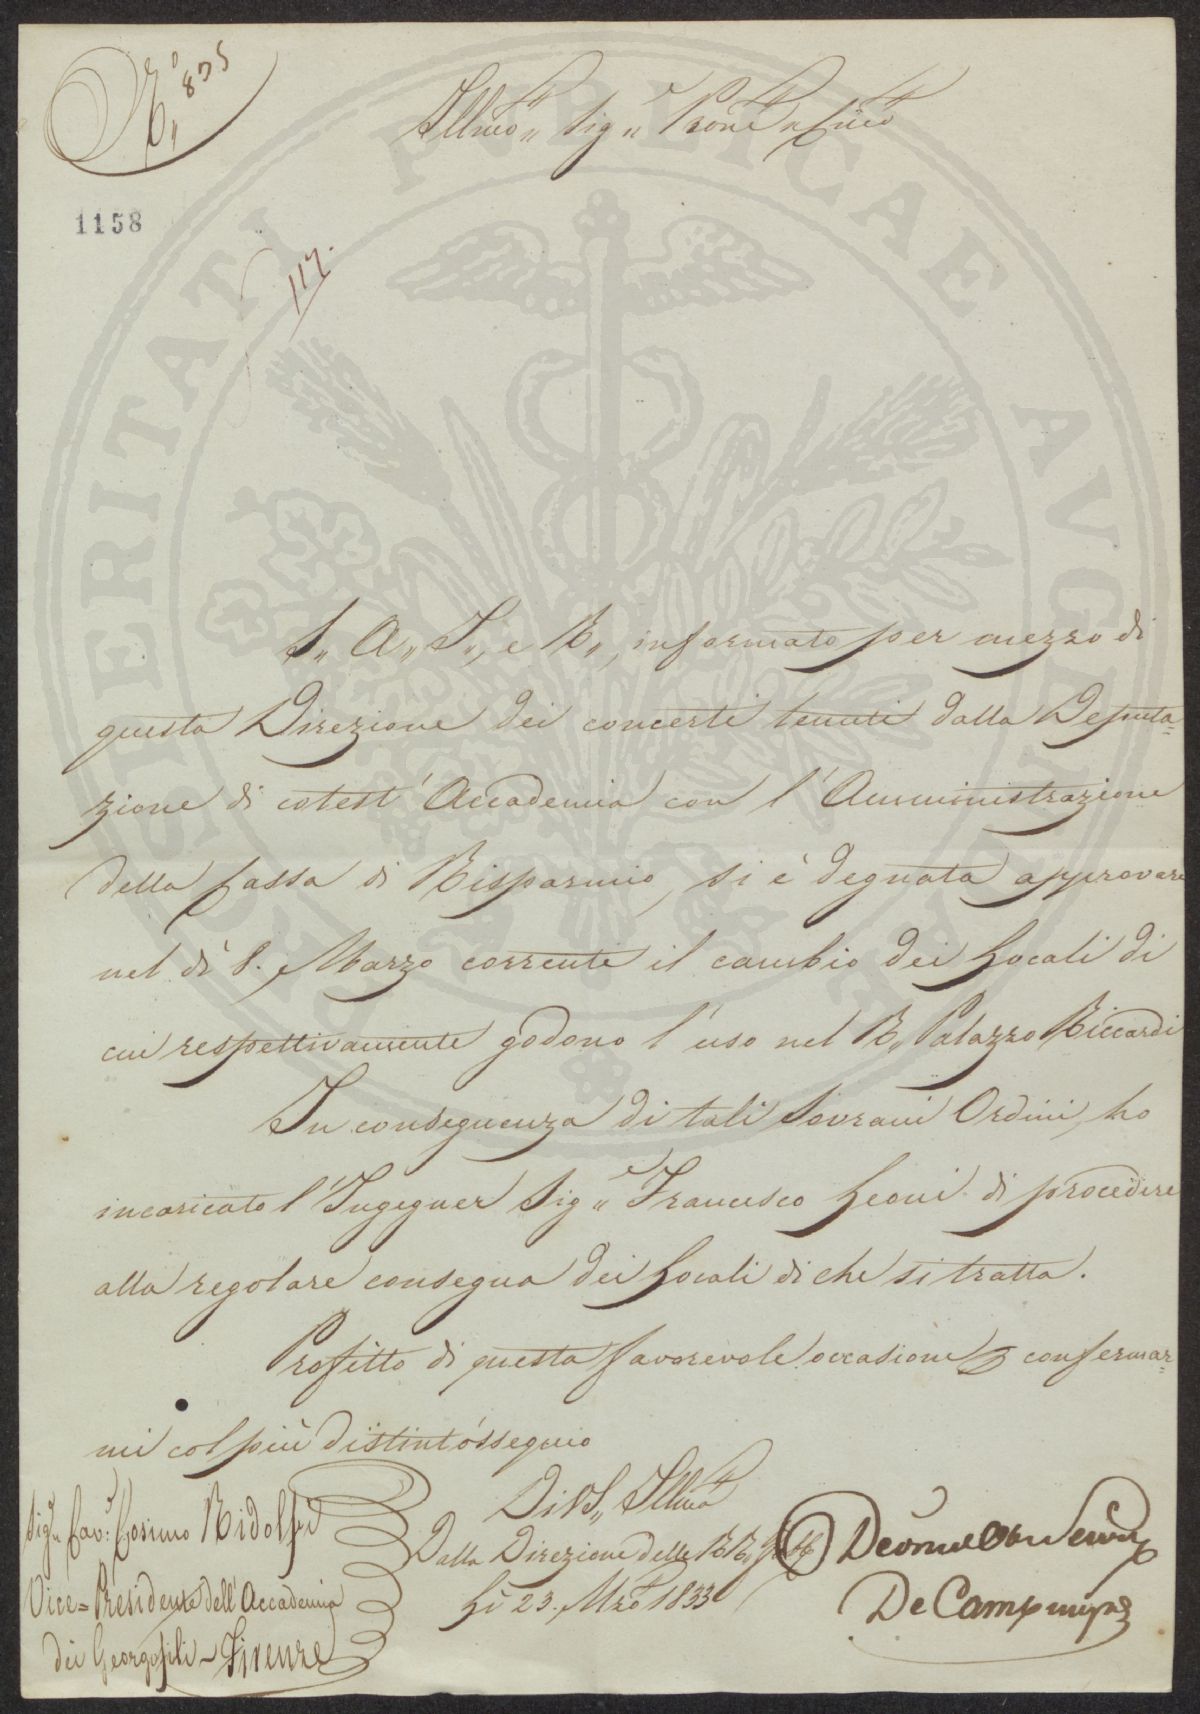 N.° 875
Illmo Sig.e Prone Colmo
1158
117.
S,, A,, I,, e R,, informato per mezzo di
questa Direzione dei concerti tenuti dalla Deputa=
zione di cotest' Accademia con l'Amministrazione
della Cassa di Risparmio, si è degnata approvare
nel dì 8. Marzo corrente il cambio dei Locali di
cui respettivamente godono l'uso nel R,, Palazzo Riccardi
In conseguenza di tali Sovrani Ordini, ho
incaricato l'Ingegner Sig.e Francesco Leoni di procedere
alla regolare consegna dei Locali di che si tratta.
Profitto di questa favorevole occasione confermar=
mi col più distint'ossequio
Di VS,, Illma
Dalla Direzione delle RR. Fabb
Lì 23. Mzo 1833
Sig.e Cav.e Cosimo Ridolfi
Vice=Presidente dell'Accademia
dei Georgofili - Firenze
Devmo Obb Servo